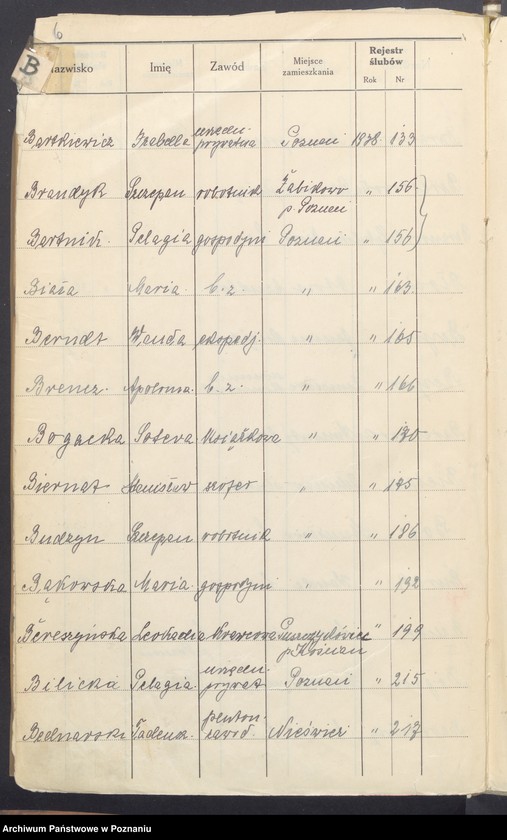 6
B
Nazwisko Imię Zawód Miejsce zamieszkania Rejestr ślubów Rok Nr
Bartkiewicz Izabella urzędn. prywatna Poznań 1938 133
Brandyk Szczepan robotnik Żabikowo p. Poznań " 156
Bartnik. Pelagia gospodyni Poznań " 156
Biała Maria. b. z. " " 163.
Berndt Wanda ekspedj. " " 165
Brencz. Apolonia. b. z. " " 166
Bogacka Sotera książkowa " "
Biernat Stanisław szofer " "
Budzyn Szczepan robotnik " " 186
Bąkowska Maria. gospodyni " " 192
Bereszyńska Leokadia krawcowa p. Kościan " 199
Bilicka Pelagia urzędn. prywat. Poznań " 215
Bednarski Tadeusz. zawod. " 217
Archiwum Państwowe w Poznaniu